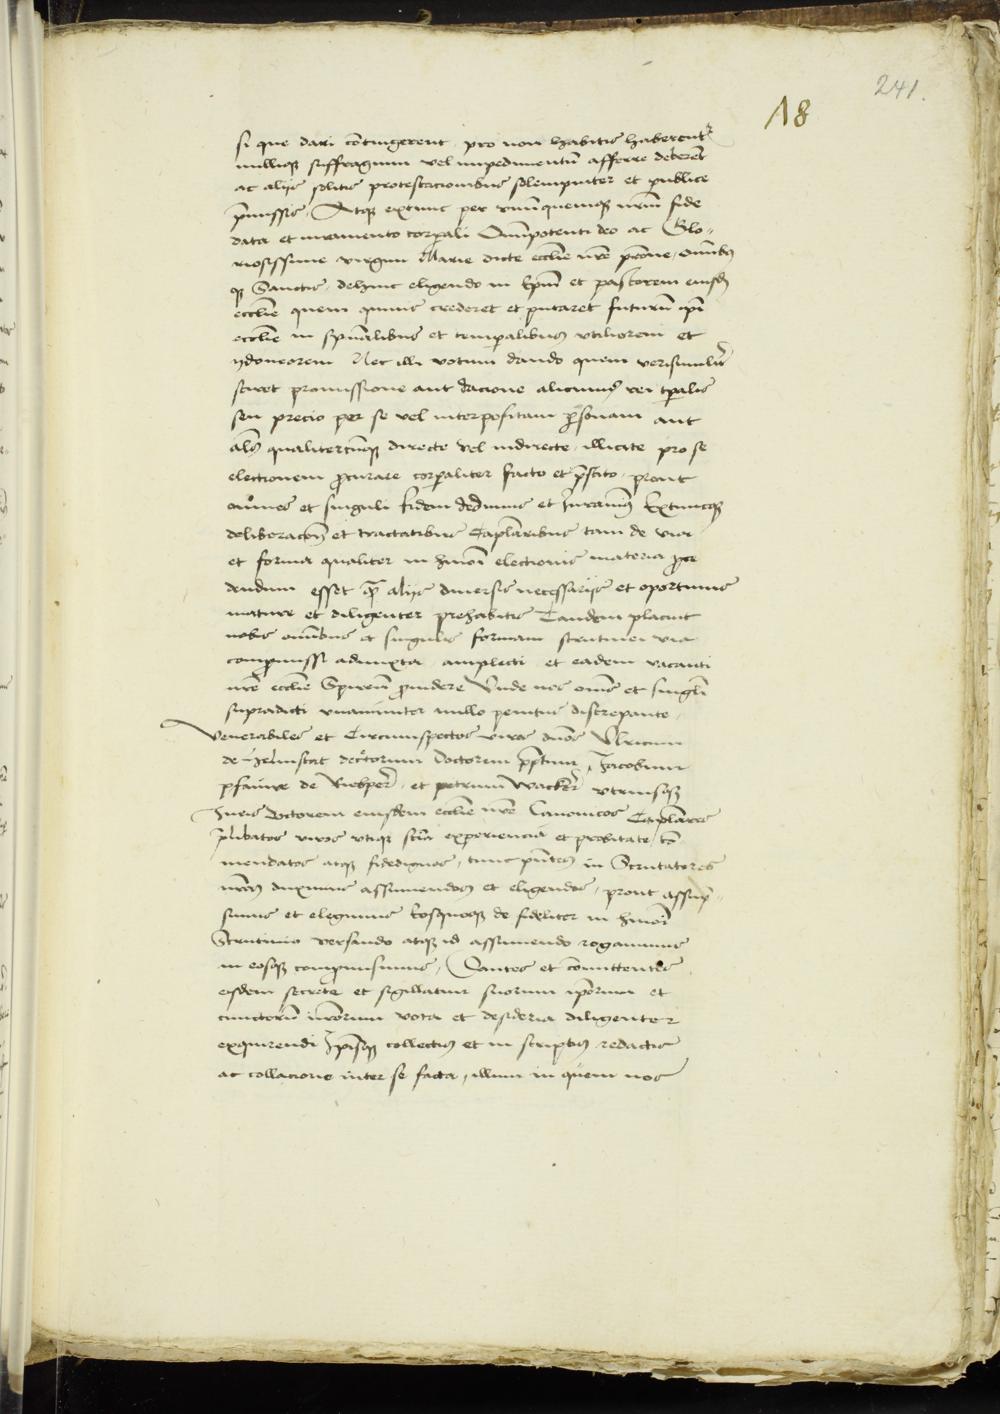 241.
18
si que dari cōtingerent pro non habitis haberent~r
nulliq₃ suffragium vel impedimentū afferre deberēt
ac alijs solitis protestacionibus solempniter et publice
p̄missis, Atq₃ extunc per vnūquemq₃ nr̄m fide
data et iuramento corpali Omīpotenti deo ac Glo-
riosissime virgini Marie dicte ecclīe nr̄e p̄rone, omībus
q₃ Sanctis, dehinc eligendo in Ep̄m et pastorem eiusdē
ecclīe quem quiuis crederet et putaret futurū ip̄i
ecclīe in spūalibus et temp̄alibus vtiliorem et
ydoneorem Nec illi votum dando quem verisimilr̄
sciret promissione aut dacione alicuius rei tp̄alis
seu precio per se vel interpositam p̄sonam aut
als̄ qualitercūq₃ directe vel indirecte illicite pro se
electionem p̄curare corp̄aliter facto et p̄stito, prout
omnes et singuli fidem dedimus et Iurauim9 Extuncq₃
deliberacōni9 et tractatibus Cap̄laribus tam de via
et forma qualiter in hm̄oi electionis materia p̄ce
dendum esset q̄ꝫ alijs diuersis necessarijs et oportunis
mature et diligenter prehabitis Tandem placuit
nobis omībus et singulis formam scrutinei via
compromissi adiuncta amplecti et eadem vacanti
nr̄e ecclīe Spireñ p̄uidere Unde nos om̄s et singlī
supradicti vnanimiter nullo penitus discrepante,
Venerabiles et Circumspectos viros dn̄os Vlricum
de decretorum Doctorem p̄ptum, Jacobum
pfawe de Rietper̄, et petrum Wacker̄ vtriusq₃
Juris doctorem eiusdem ecclīe nr̄e Canonicos Cap̄lares
p̄libatos viros vtiq₃ scīa experiencia et probitate cō
mendatos atq₃ fidedignos, tunc pn̄tes in Scrutatores
nr̄os duximus assumendos et eligendos, prout assūp-
simus et elegimus Eosq₃ de fideliter in hm̄oi
Scrutinio versando atq₃ id assumendo rogauimus
in eosq₃ compromisimus, Dantes et cōmittentes
eisdem secrete et sigillatim suorum ip̄orum et
cunctorū nr̄orum vota et desideria diligenter
exquirendi Ip̄isq₃ collectis et in scriptis redactis
ac collacione inter se facta, illum in quem nos